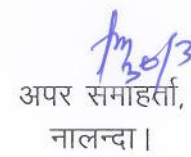 अपर समाहर्ता,
नालन्दा।